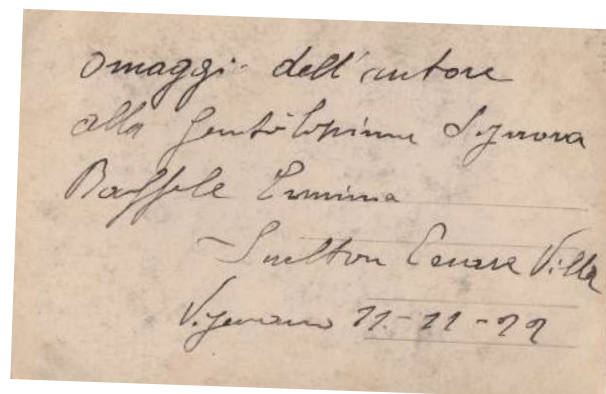 Omaggi dell'autore
alla Gentilissima Signora
Raffele Erminia
Scultore Cesare Villa
Vigevano 11-11-22